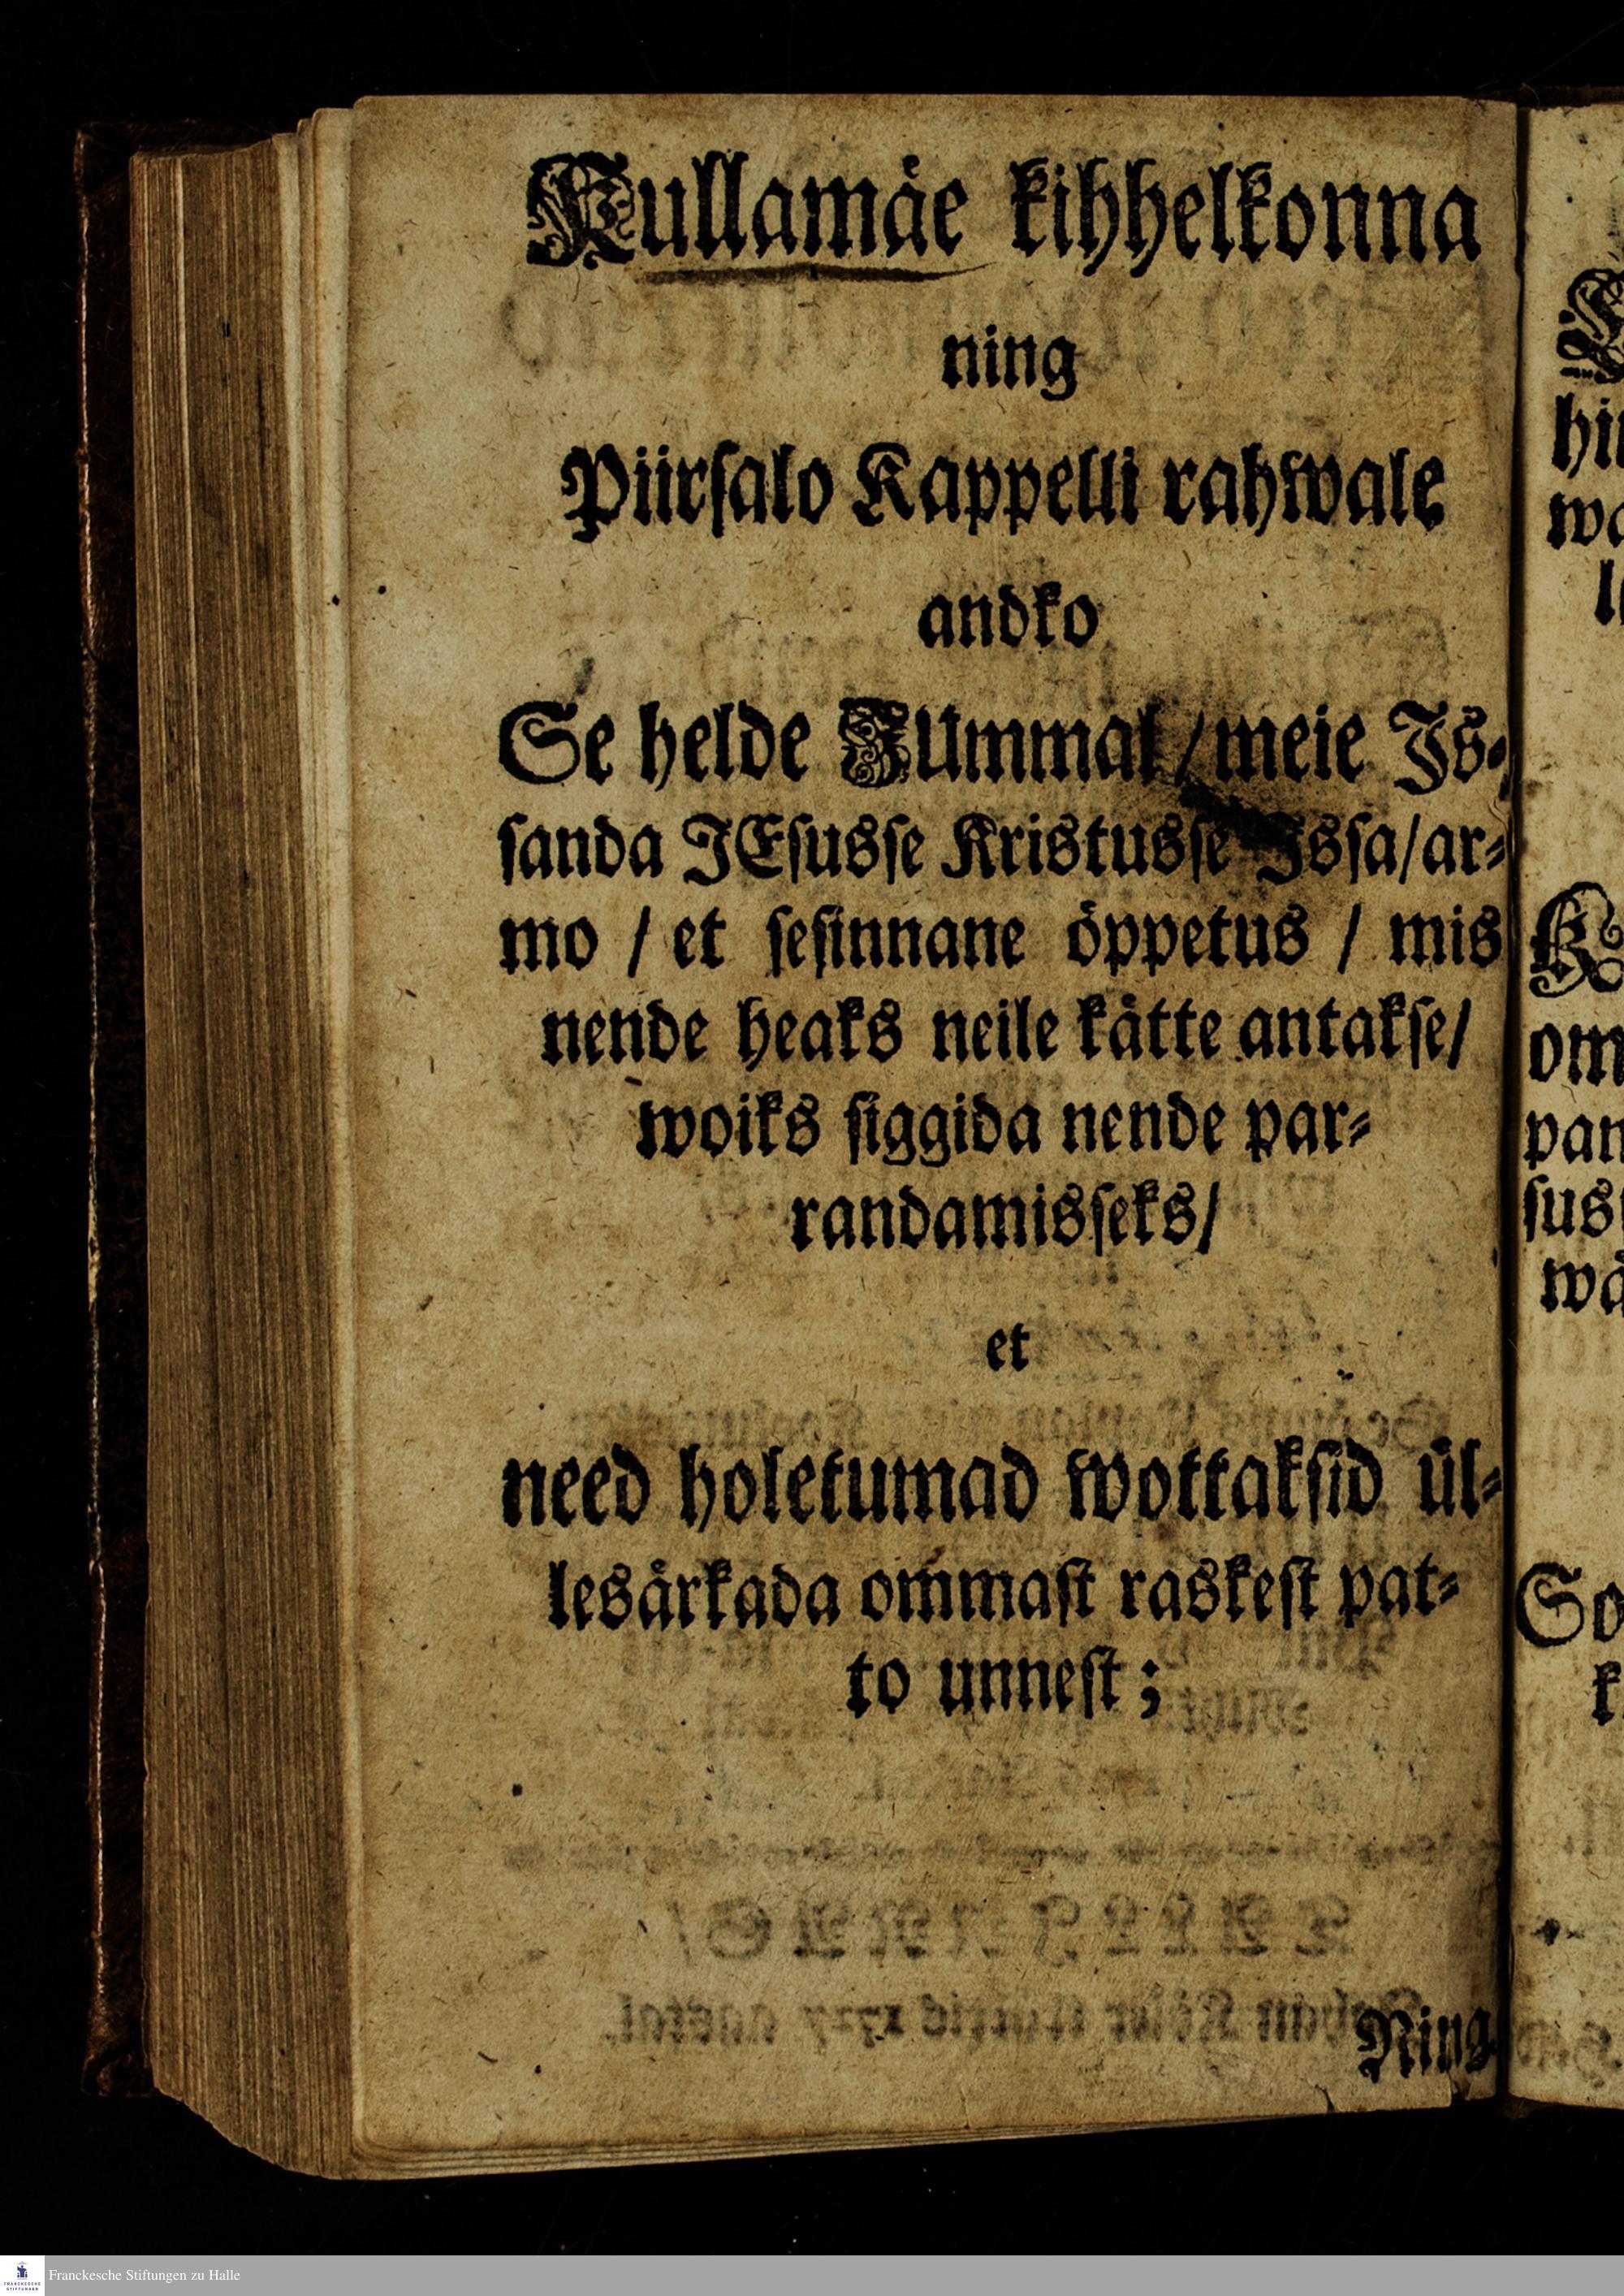 Kullamäe kihhelkonna
ning
Piirſalo Kappelli rahwale
andko
Se helde JUmmal / meie Js⸗
ſanda JEſusſe Kristusſe Jsſa/ar⸗
mo / et ſeſinnane öppetus / mis
nende heaks neile kätte antakſe/
woiks ſiggida nende par⸗
randamisſeks/
et
need holetumad wottakſid ül⸗
lesärkada ommaſt raskeſt pat⸗
to unneſt ;
Ning
hi
wa
om
pan
ſus
wä
So
Franckesche Stiftungen zu Halle